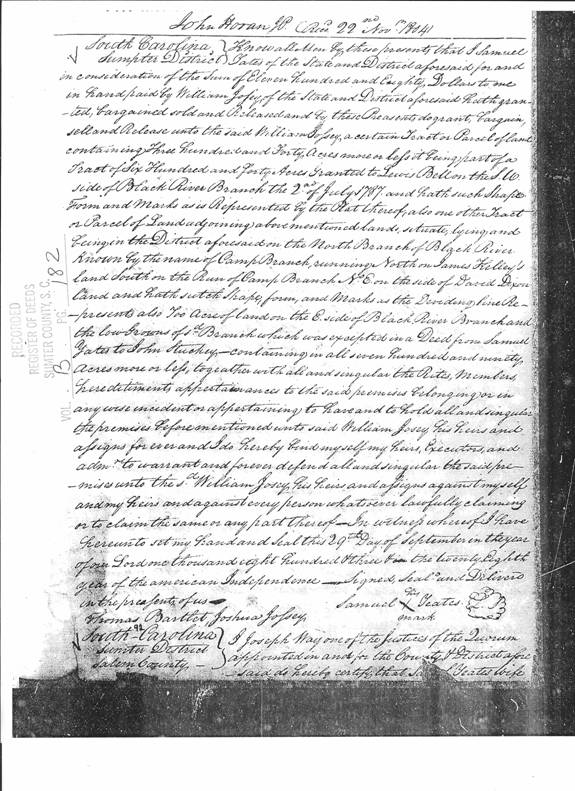 John Horan JP. Rec.d 22nd Novr 1804
South Carolina } Know all Men by these presents that I Samuel
Sumpter District } Yates of the State and District aforesaid for and
in consideration of the Sum of Eleven Hundred and Eighty, Dollars to me
in hand paid by William Josey, of the State and District aforesaid Hath gran-
-ted, bargained sold and Released and by these Presents do grant, bargain,
sell and Release unto the said William Josey, a certain Tract or Parcel of land
containing Three hundred and Forty, Acres more or less it being part of a
Tract of Six Hundred and Forty Acres Granted to Lewis Bell on the S.W.
side of Black River Branch the 2nd of July 1787. and hath such Shape
Form and Marks as is Represented by the Plat thereof, also one other Tract
or Parcel of Land adjoining above mentioned land, situate, lying and
being in the District aforesaid on the North Branch of Black River
Known by the name of Camp Branch, running North on James Kelley's
land South on the Run of Camp Branch N.E. on the side of David Dixon
Land and hath such Shape, form, and Marks as the Deviding line Re-
-presents also Two Acre of land on the E. side of Black River Branch and
the low Grouns of sd. Branch which was excepted in a Deed from Samuel
Yates to John Stuckey,- containing in all seven hundred and ninety
Acres more or less, togeather with all and singular the Rates, Members
hereditments, appertainances to the said premises belonging or in
any wise incident or appertaining to have and to hold all and singular
the premises before mentioned unto said William Josey his heirs and
assigns forever and I do hereby bind myself my heirs, Executors, and
admrs to warrant and forever defend all and singular the said pre-
-mises unto the sd. William Josey, his heirs and assigns against myself
and my heirs and against every person whatsoever lawfully claiming
or to claim the same or any part thereof - In witness whereof I have
hereunto set my hand and Seal this 29th Day of September in the year
of our Lord one thousand eight hundred & three & in the twenty Eighth
year of the american Independence - Signed, Seald and Deliverd
in the presents of us -
Samuel X Yeates
his
mark
Thomas Bartlet, Joshua Josey,
South Carolina }
Sumter District }
Salem County, - }
I Joseph Way one of the Justices of the Quorum
appointed in and for the County & District afore
-said do hereby certify, that
Yeates wife
RECORDED
REGISTER OF DEEDS
SUMTER COUNTY, S.C.
VOL. B PG. 182